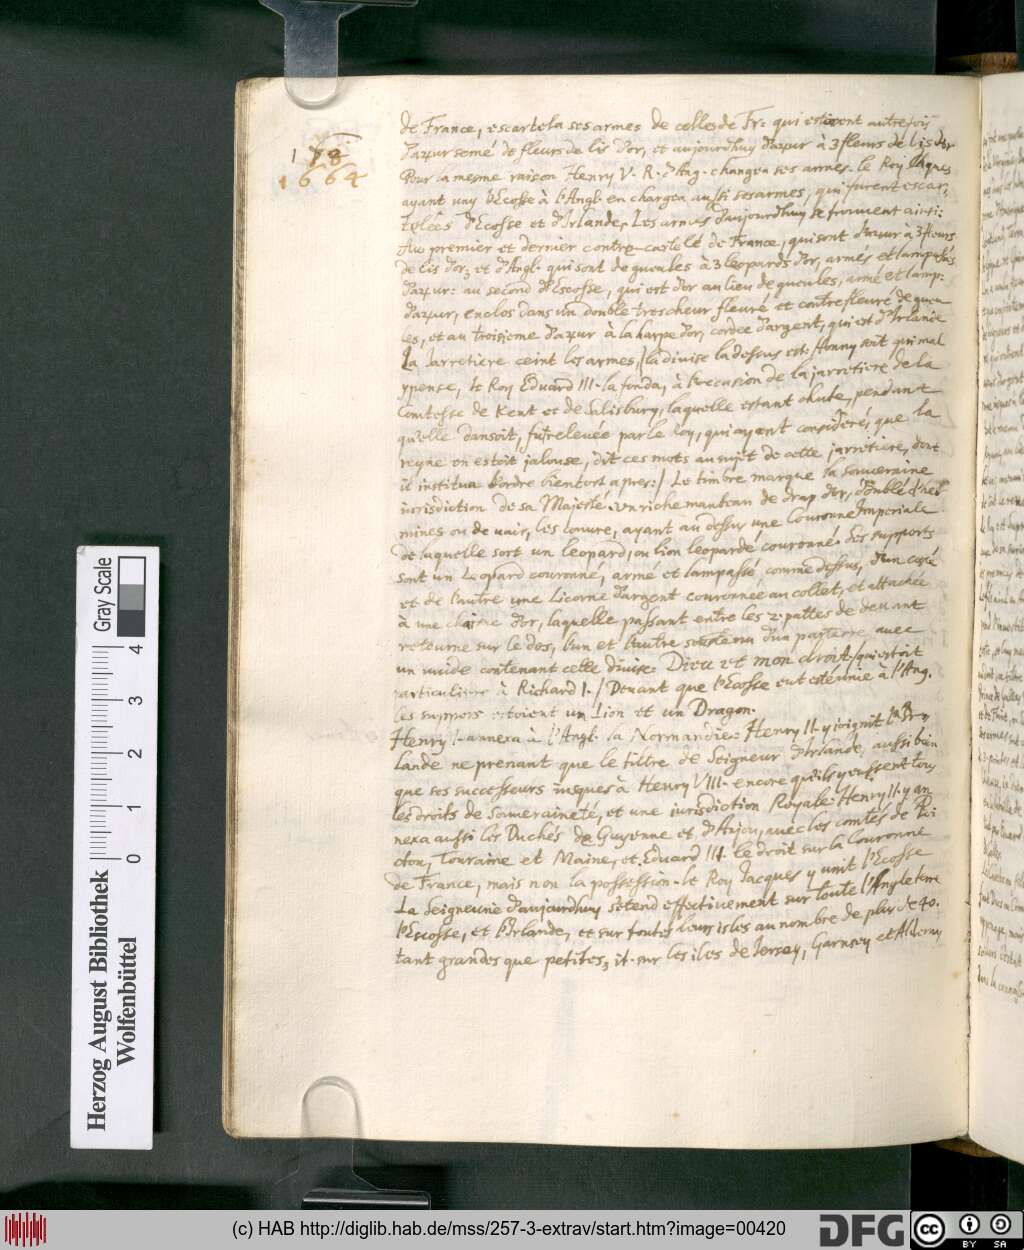 1 78
1664
de France, escartela ses armes de celles de Fr: qui estoient autrefois
d'azur semé de fleurs de lis d'or, et aujourdhuy d'azur à 3 fleurs de lis d'or
Pour la mesme raison Henry V. R. d'Ang. changea ses armes. le Roy Jaques
ayant uny l'Ecosse à l'Angl. en changea aussi ses armes, qui furent escar,
telées d'Ecosse et d'Irlande. Les armes d'aujourdhuy se trouvent ainsi:
Au premier et dernier contre-cartelé de France, qui sont d'azur à 3 fleurs
de lis d'or, et d'Angl. qui sont de gueules à 3 leopards d'or, armés et lampassés
d'azur: au second d'Escosse, qui est d'or au lieu de gueules, armé et lamp:
d'azur, enclos dans un double trescheur fleuré et contrefleuré de gueu
les, et au troisieme d'azur à la harpe d'or, cordée d'argent, qui est d'Irlande
La Jarretiere ceint les armes, /la divise la dessus est: Honny soit qui mal
y pense, le Roy Eduard III. la fonda, à l'occasion de la jarretiere de la
Comtesse de Kent et de Salisbury, laquelle estant chute, pendant
qu'elle dansoit, fut relevée par le Roy, qui ayant consideré, que la
reyne en estoit jalouse, dit ces mots au sujet de cette jarretiere, dont
il institua l'ordre bientost apres:/ Le timbre marque la souveraine
iurisdiction de sa Majesté. un riche manteau de drap d'or, doublé d'her
mines ou de vair, les couvre, ayant au dessus une Couronne Imperiale
de laquelle sort un leopard, ou lion leopardé couronné. Les supports
sont un Leopard couronné, armé et lampassé, comme dessus, d'un costé
et de l'autre une Licorne d'argent couronnée au collet, et attachée
à une chaisne d'or, laquelle passant entre les 2. pattes de devant
retourne sur le dos, l'un et l'autre soustenu d'un parterre avec
un vuide contenant cette divise: Dieu et mon droit./qui estoit
particuliere à Richard I./ Devant que l'Ecosse eut esté unie à l'Ang.
les supports estoient un Lion et un Dragon.
Henry I. annexa à l'Angl. la Normandie: Henry II. y joignit l'Ir,
lande ne prenant que le tiltre de Seigneur d'Irlande, aussi bien
que ses successeurs iusques à Henry VIII. encore qu'ils y eussent tous
les droits de souveraineté, et une iurisdiction Royale: Henry II. y an
nexa aussi les Duchés de Guyenne et d'Anjou, avec les comtés de Poi
ctou, Touraine et Maine, et Eduard III. le droit sur la Couronne
de France, mais non la possession. le Roy Jacques y unit l'Ecosse
La Seigneurie d'aujourdhuy s'etend effectivement sur toute l'Angleterre
l'Escosse, et l'Irlande, et sur toutes leurs isles au nombre de plus de 40.
tant grandes que petites, it. sur les iles de Jersey, Garnsey et Alderny
Gray Scale
0 1 2 3 4
Herzog August Bibliothek
Wolfenbüttel
(c) HAB http://diglib.hab.de/mss/257-3-extrav/start.htm?image=00420
DFG
cc BY SA